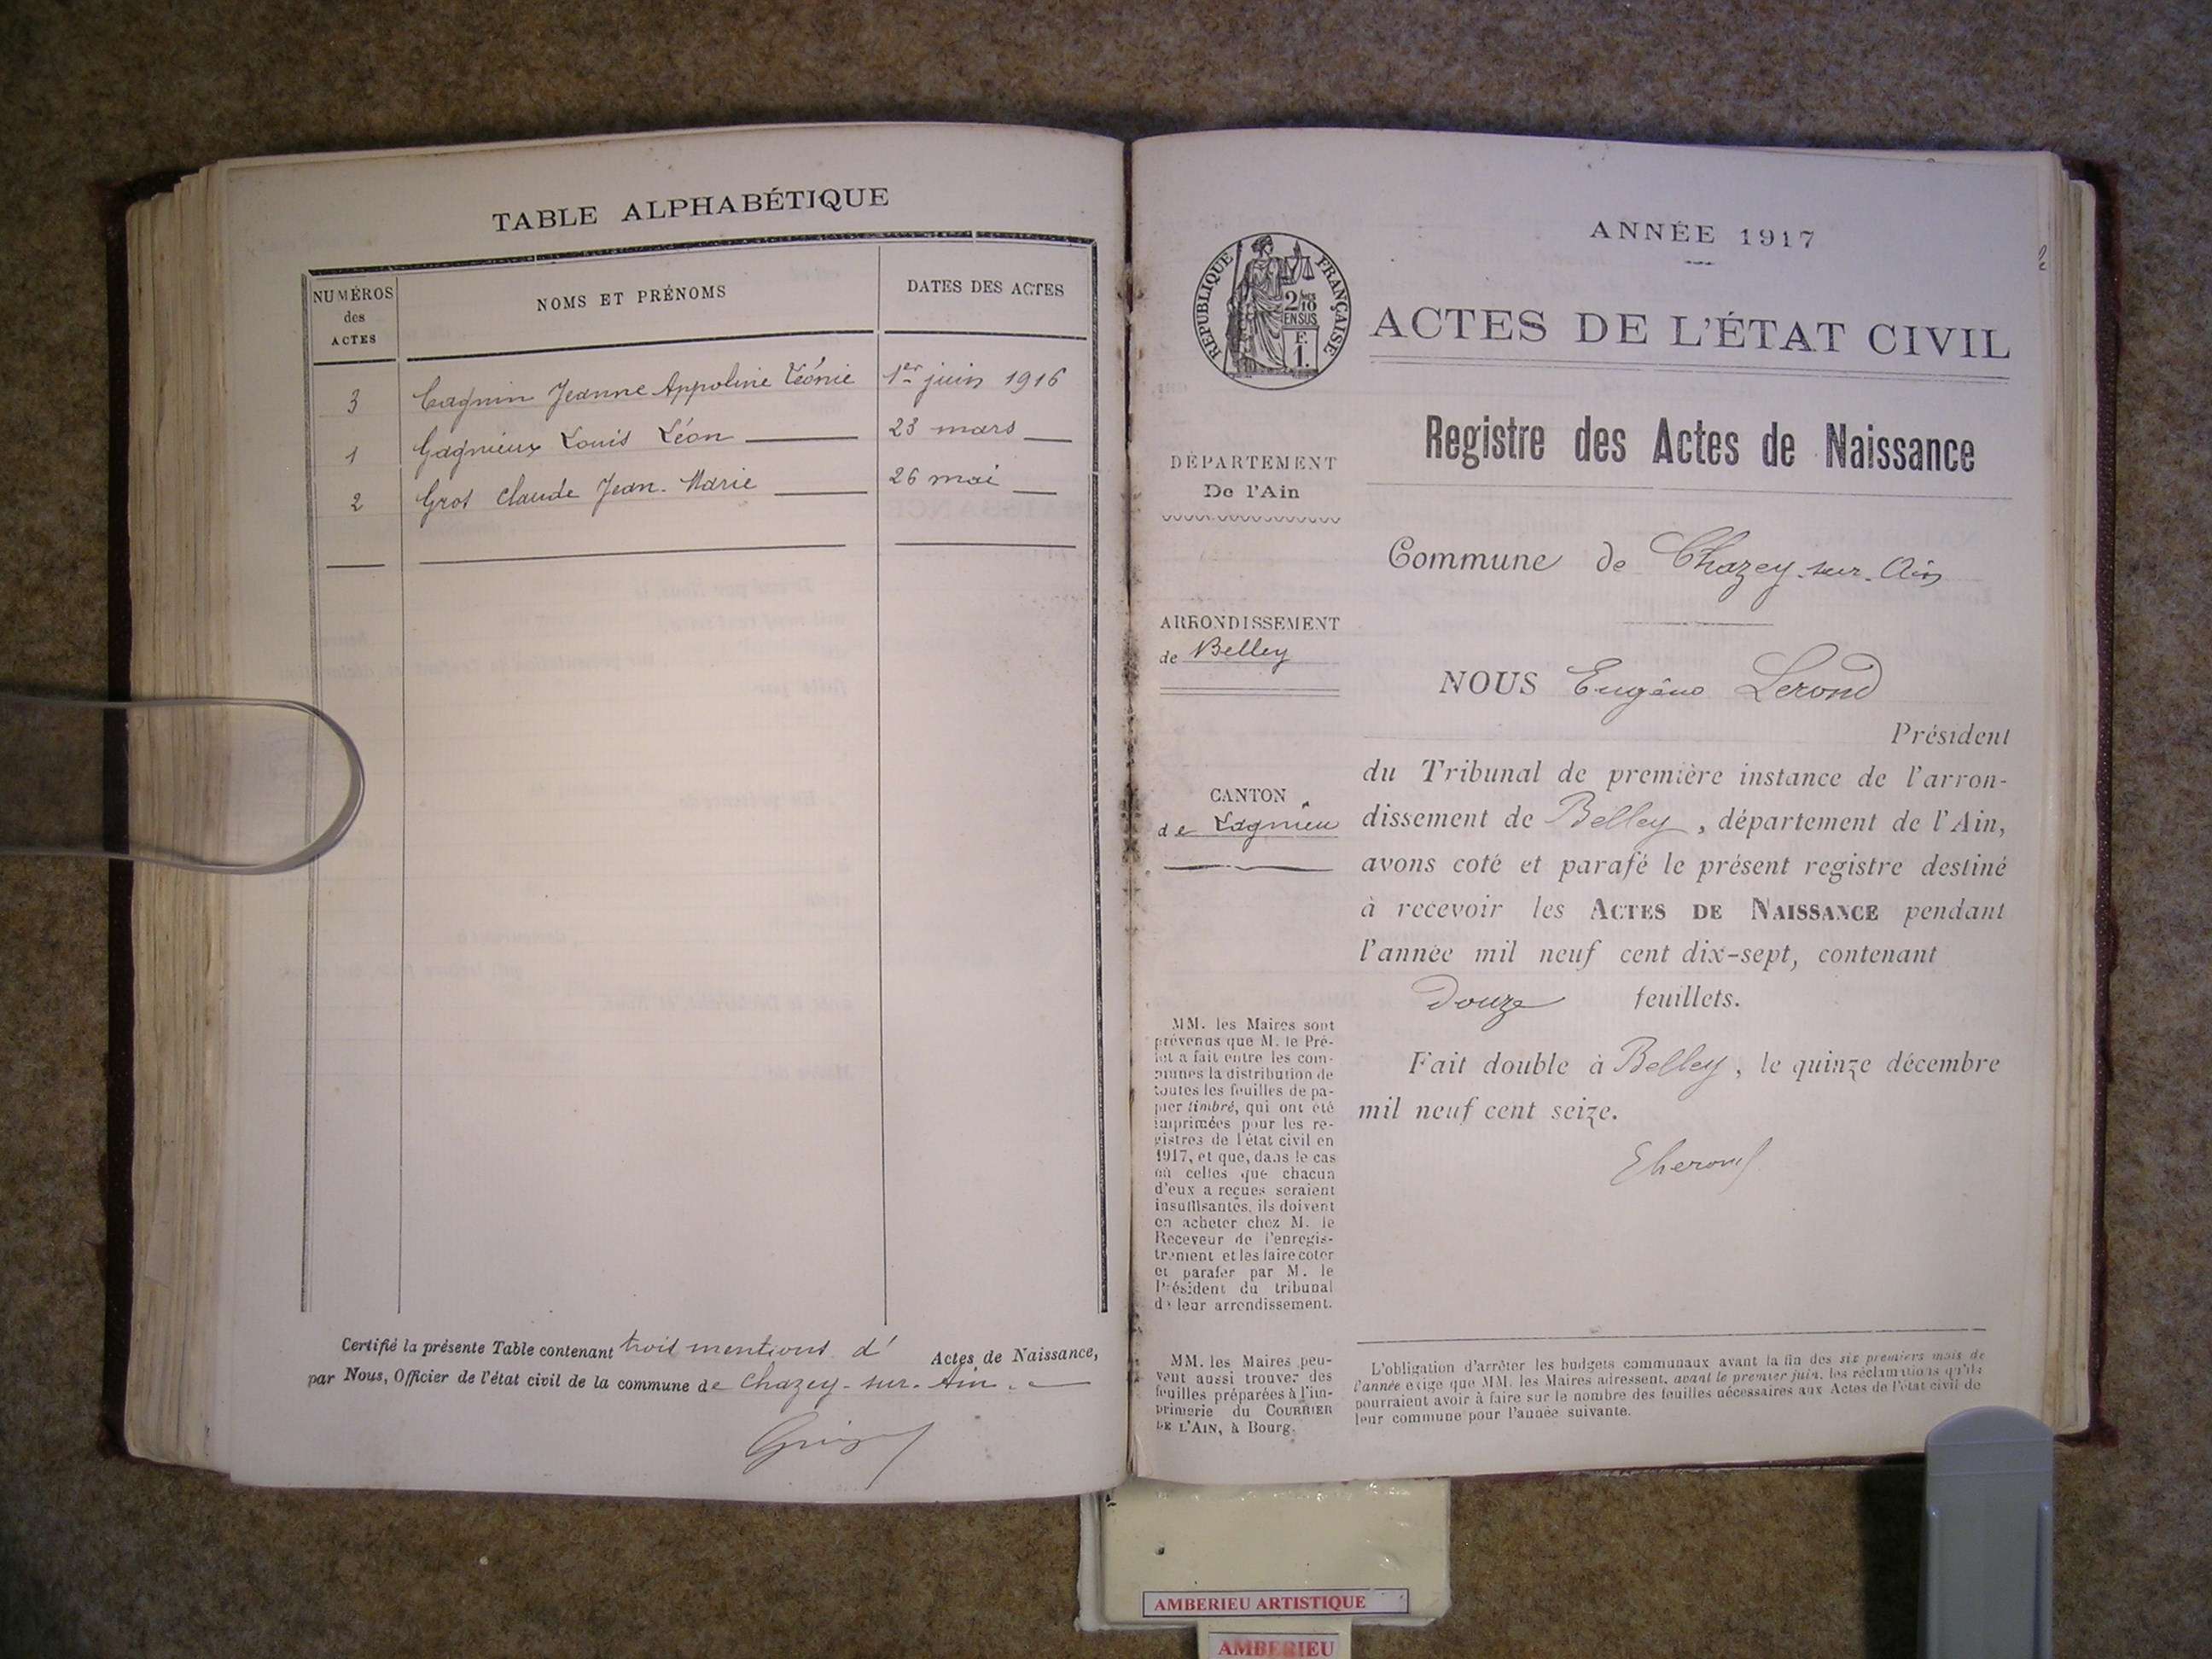 TABLE ALPHABÉTIQUE
NUMÉROS
des
ACTES
NOMS ET PRÉNOMS
DATES DES ACTES
3 Cagnin Jeanne Appoline Léonie 1er juin 1916
1 Gagnieux Louis Léon 23 mars
2 Gros Claude Jean-Marie 26 mai
Certifié la présente Table contenant trois mentions d' Actes de Naissance,
par Nous, Officier de l'état civil de la commune de Chazey-sur-Ain.
ANNÉE 1917
RÉPUBLIQUE FRANÇAISE
2/10
EN SUS
F.
1.
ACTES DE L'ÉTAT CIVIL
Registre des Actes de Naissance
DÉPARTEMENT
De l'Ain
ARRONDISSEMENT
de Belley
CANTON
de Lagnieu
MM. les Maires sont
prévenus que M. le Pré-
fet a fait entre les com-
munes la distribution de
toutes les feuilles de pa-
pier timbré, qui ont été
imprimées pour les re-
gistres de l'état civil en
1917, et que, dans le cas
où celles que chacun
d'eux a reçues seraient
insuffisantes, ils doivent
en acheter chez M. le
Receveur de l'enregis-
trement et les faire coter
et parafer par M. le
Président du tribunal
de leur arrondissement.
MM. les Maires peu-
vent aussi trouver des
feuilles préparées à l'im-
primerie du COURRIER
DE L'AIN, à Bourg.
Commune de Chazey-sur-Ain
NOUS Eugène Lerond
Président
du Tribunal de première instance de l'arron-
dissement de Belley, département de l'Ain,
avons coté et parafé le présent registre destiné
à recevoir les ACTES DE NAISSANCE pendant
l'année mil neuf cent dix-sept, contenant
Douze feuillets.
Fait double à Belley, le quinze décembre
mil neuf cent seize.
L'obligation d'arrêter les budgets communaux avant la fin des six premiers mois de
l'année exige que MM. les Maires adressent, avant le premier juin, les réclamations qu'ils
pourraient avoir à faire sur le nombre des feuilles nécessaires aux Actes de l'état civil de
leur commune pour l'année suivante.
AMBERIEU ARTISTIQUE
AMBERIEU